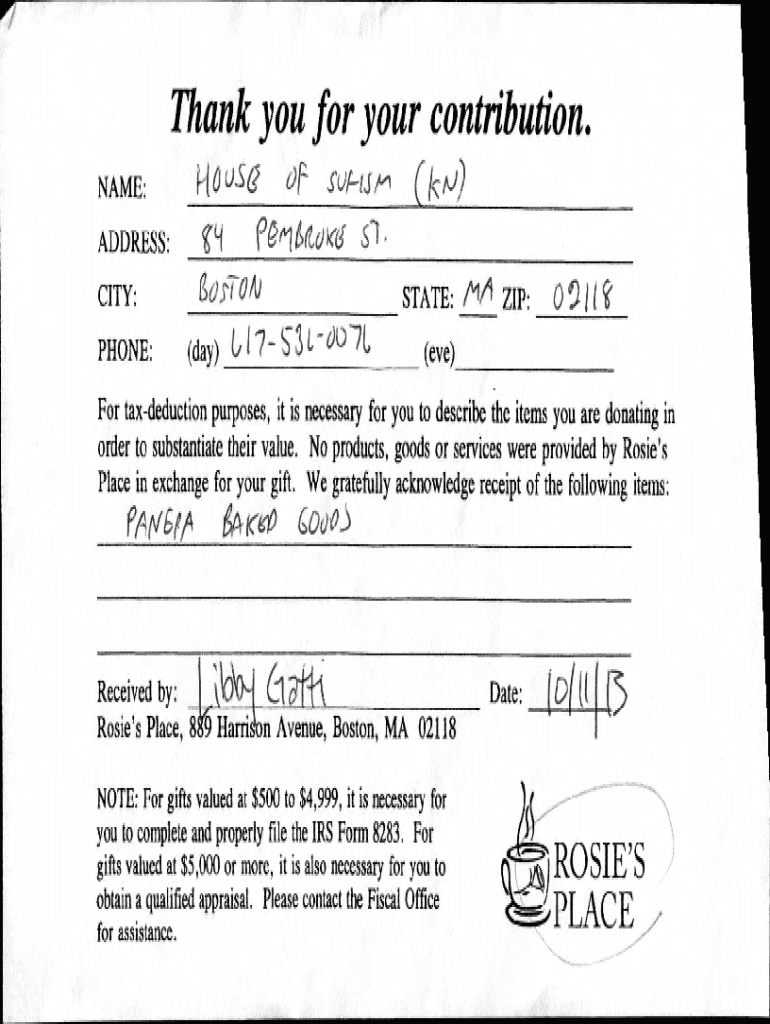 Thank you for your contribution.
NAME: HOUSE OF SUFISM (KN)
ADDRESS: 84 PEMBROKE ST.
CITY: BOSTON STATE: MA ZIP: 02118
PHONE: (day) 617-536-0076 (eve)
For tax-deduction purposes, it is necessary for you to describe the items you are donating in
order to substantiate their value. No products, goods or services were provided by Rosie's
Place in exchange for your gift. We gratefully acknowledge receipt of the following items:
PANERA BAKED GOODS
Received by: Libby Gatti Date: 10/11/13
Rosie's Place, 889 Harrison Avenue, Boston, MA 02118
NOTE: For gifts valued at $500 to $4,999, it is necessary for
you to complete and properly file the IRS Form 8283. For
gifts valued at $5,000 or more, it is also necessary for you to
obtain a qualified appraisal. Please contact the Fiscal Office
for assistance.
ROSIE'S
PLACE